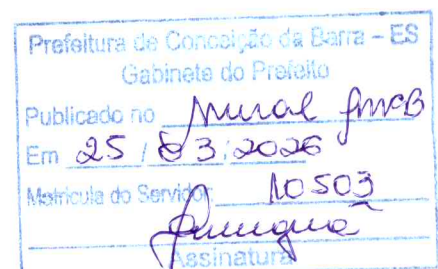 Prefeitura de Conceição da Barra – ES
Gabinete do Prefeito
Publicado no Mural PMCB
Em 25 / 03 / 2026
Matrícula do Servidor 10503
Assinatura